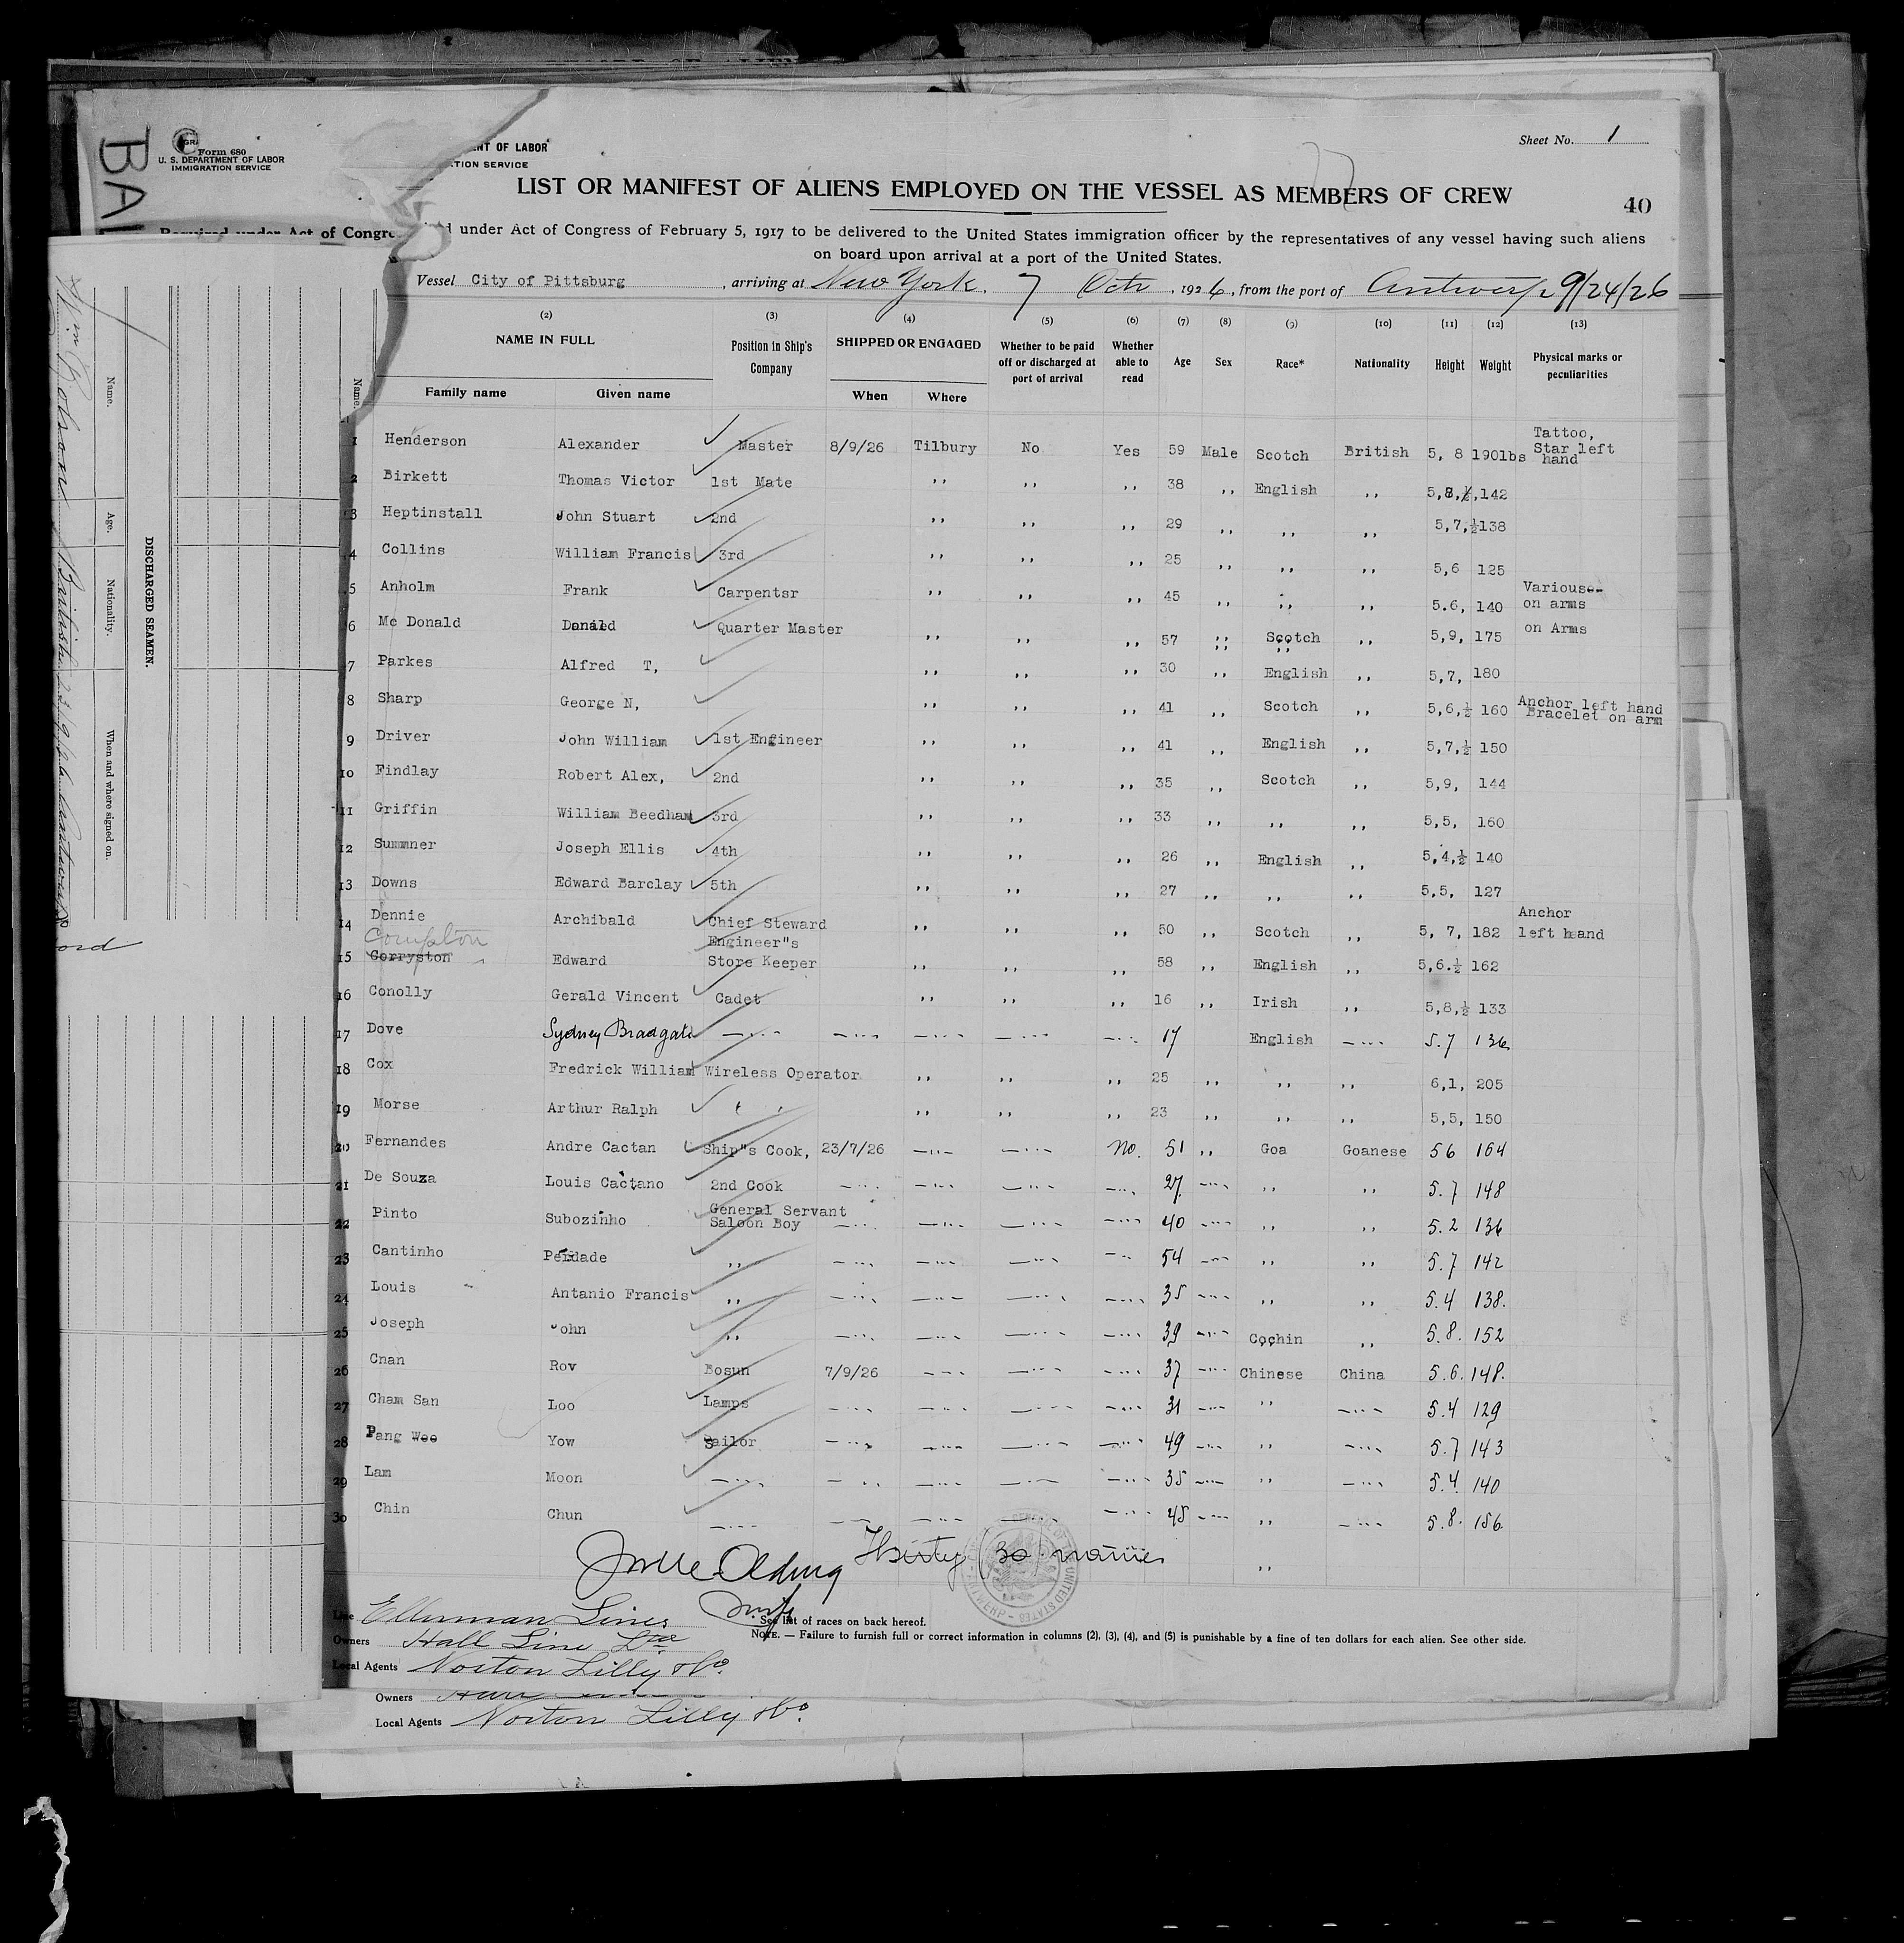 BAL
Form 680
U. S. DEPARTMENT OF LABOR
IMMIGRATION SERVICE
Required under Act of Congre
NT OF LABOR
TION SERVICE
Sheet No. 1
LIST OR MANIFEST OF ALIENS EMPLOYED ON THE VESSEL AS MEMBERS OF CREW
40
under Act of Congress of February 5, 1917 to be delivered to the United States immigration officer by the representatives of any vessel having such aliens
on board upon arrival at a port of the United States.
Vessel City of Pittsburg, arriving at New York. 7 Octr, 1926, from the port of Antwerp 9/24/26
(2) (3) (4) (5) (6) (7) (8) (9) (10) (11) (12) (13)
NAME IN FULL Position in Ship's Company SHIPPED OR ENGAGED Whether to be paid off or discharged at port of arrival Whether able to read Age Sex Race* Nationality Height Weight Physical marks or peculiarities
Family name Given name When Where
1 Henderson Alexander Master 8/9/26 Tilbury No Yes 59 Male Scotch British 5, 8 190lbs Tattoo, Star left hand
2 Birkett Thomas Victor 1st Mate ,, ,, ,, 38 ,, English ,, 5,8,½,142
3 Heptinstall John Stuart 2nd ,, ,, ,, 29 ,, ,, ,, 5,7,½138
4 Collins William Francis 3rd ,, ,, ,, 25 ,, ,, ,, 5,6 125
5 Anholm Frank Carpentsr ,, ,, ,, 45 ,, ,, ,, 5.6, 140 Various-- on arms
6 Mc Donald Daniel Quarter Master ,, ,, ,, 57 ,, Scotch ,, 5,9, 175 on Arms
7 Parkes Alfred T, ,, ,, ,, 30 ,, English ,, 5,7, 180
8 Sharp George N, ,, ,, ,, 41 ,, Scotch ,, 5,6,½ 160 Anchor left hand Bracelet on arm
9 Driver John William 1st Engineer ,, ,, ,, 41 ,, English ,, 5,7,½ 150
10 Findlay Robert Alex, 2nd ,, ,, ,, 35 ,, Scotch ,, 5,9, 144
11 Griffin William Beedham 3rd ,, ,, ,, 33 ,, ,, ,, 5,5, 160
12 Summner Joseph Ellis 4th ,, ,, ,, 26 ,, English ,, 5,4,½ 140
13 Downs Edward Barclay 5th ,, ,, ,, 27 ,, ,, ,, 5,5, 127
14 Dennie Archibald Chief Steward ,, ,, ,, 50 ,, Scotch ,, 5, 7, 182 Anchor left hand
Compston
15 Corryston Edward Engineer"s Store Keeper ,, ,, ,, 58 ,, English ,, 5,6.½ 162
16 Conolly Gerald Vincent Cadet ,, ,, ,, 16 ,, Irish ,, 5,8,½ 133
17 Dove Sydney Bradgate 17 English 5.7 136
18 Cox Fredrick William Wireless Operator ,, ,, ,, 25 ,, ,, ,, 6,1, 205
19 Morse Arthur Ralph ,, ,, ,, 23 ,, ,, ,, 5,5, 150
20 Fernandes Andre Cactan Ship"s Cook, 23/7/26 No. 51 ,, Goa Goanese 5 6 164
21 De Souza Louis Cactano 2nd Cook 27 ,, ,, 5.7 148
22 Pinto Subozinho General Servant Saloon Boy 40 ,, ,, 5.2 136
23 Cantinho Peidade ,, 54 ,, ,, 5.7 142
24 Louis Antanio Francis ,, 35 ,, ,, 5.4 138.
25 Joseph John ,, 39 Cochin ,, 5.8. 152
26 Cnan Rov Bosun 7/9/26 37 Chinese China 5.6. 148.
27 Cham San Loo Lamps 31 ,, 5.4 129
28 Pang Woo Yow Sailor 49 ,, 5.7 143
29 Lam Moon 35 ,, 5.4. 140
30 Chin Chun 45 ,, 5.8. 156
Thirty (30) names
Line Ellerman Lines
See list of races on back hereof.
Owners Hall Line Ltd
NOTE. — Failure to furnish full or correct information in columns (2), (3), (4), and (5) is punishable by a fine of ten dollars for each alien. See other side.
Local Agents Norton Lilly & Co.
Owners
Local Agents Norton Lilly & Co.
DISCHARGED SEAMEN.
Name. Age. Nationality. When and where signed on.
Name.
British